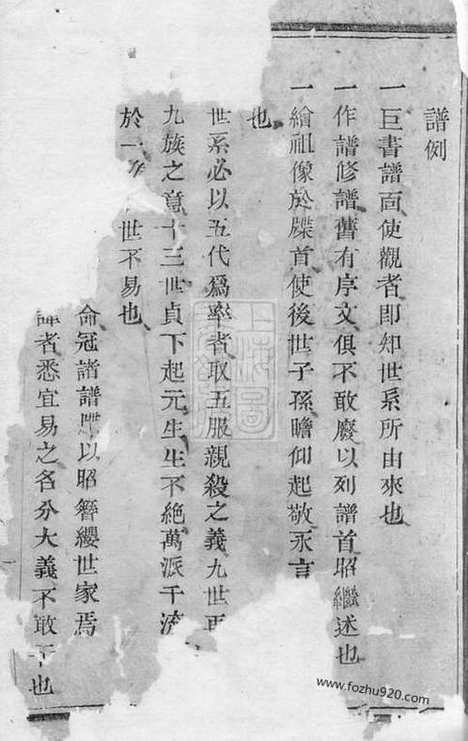 譜例
一巨書譜面使觀者即知世系所由來也
一作譜修譜舊有序文俱不敢廢以列譜首昭繼述也
一繪祖像於牒首使後世子孫瞻仰起敬永言
也
世系必以五代爲率者取五服親殺之義九世再
九族之意十三世貞下起元生生不絕萬派千流
於一 世不易也
命冠諸譜牒以昭簪纓世家焉
諱者悉宜易之名分大義不敢干也
上海圖
www.fozhu920.com